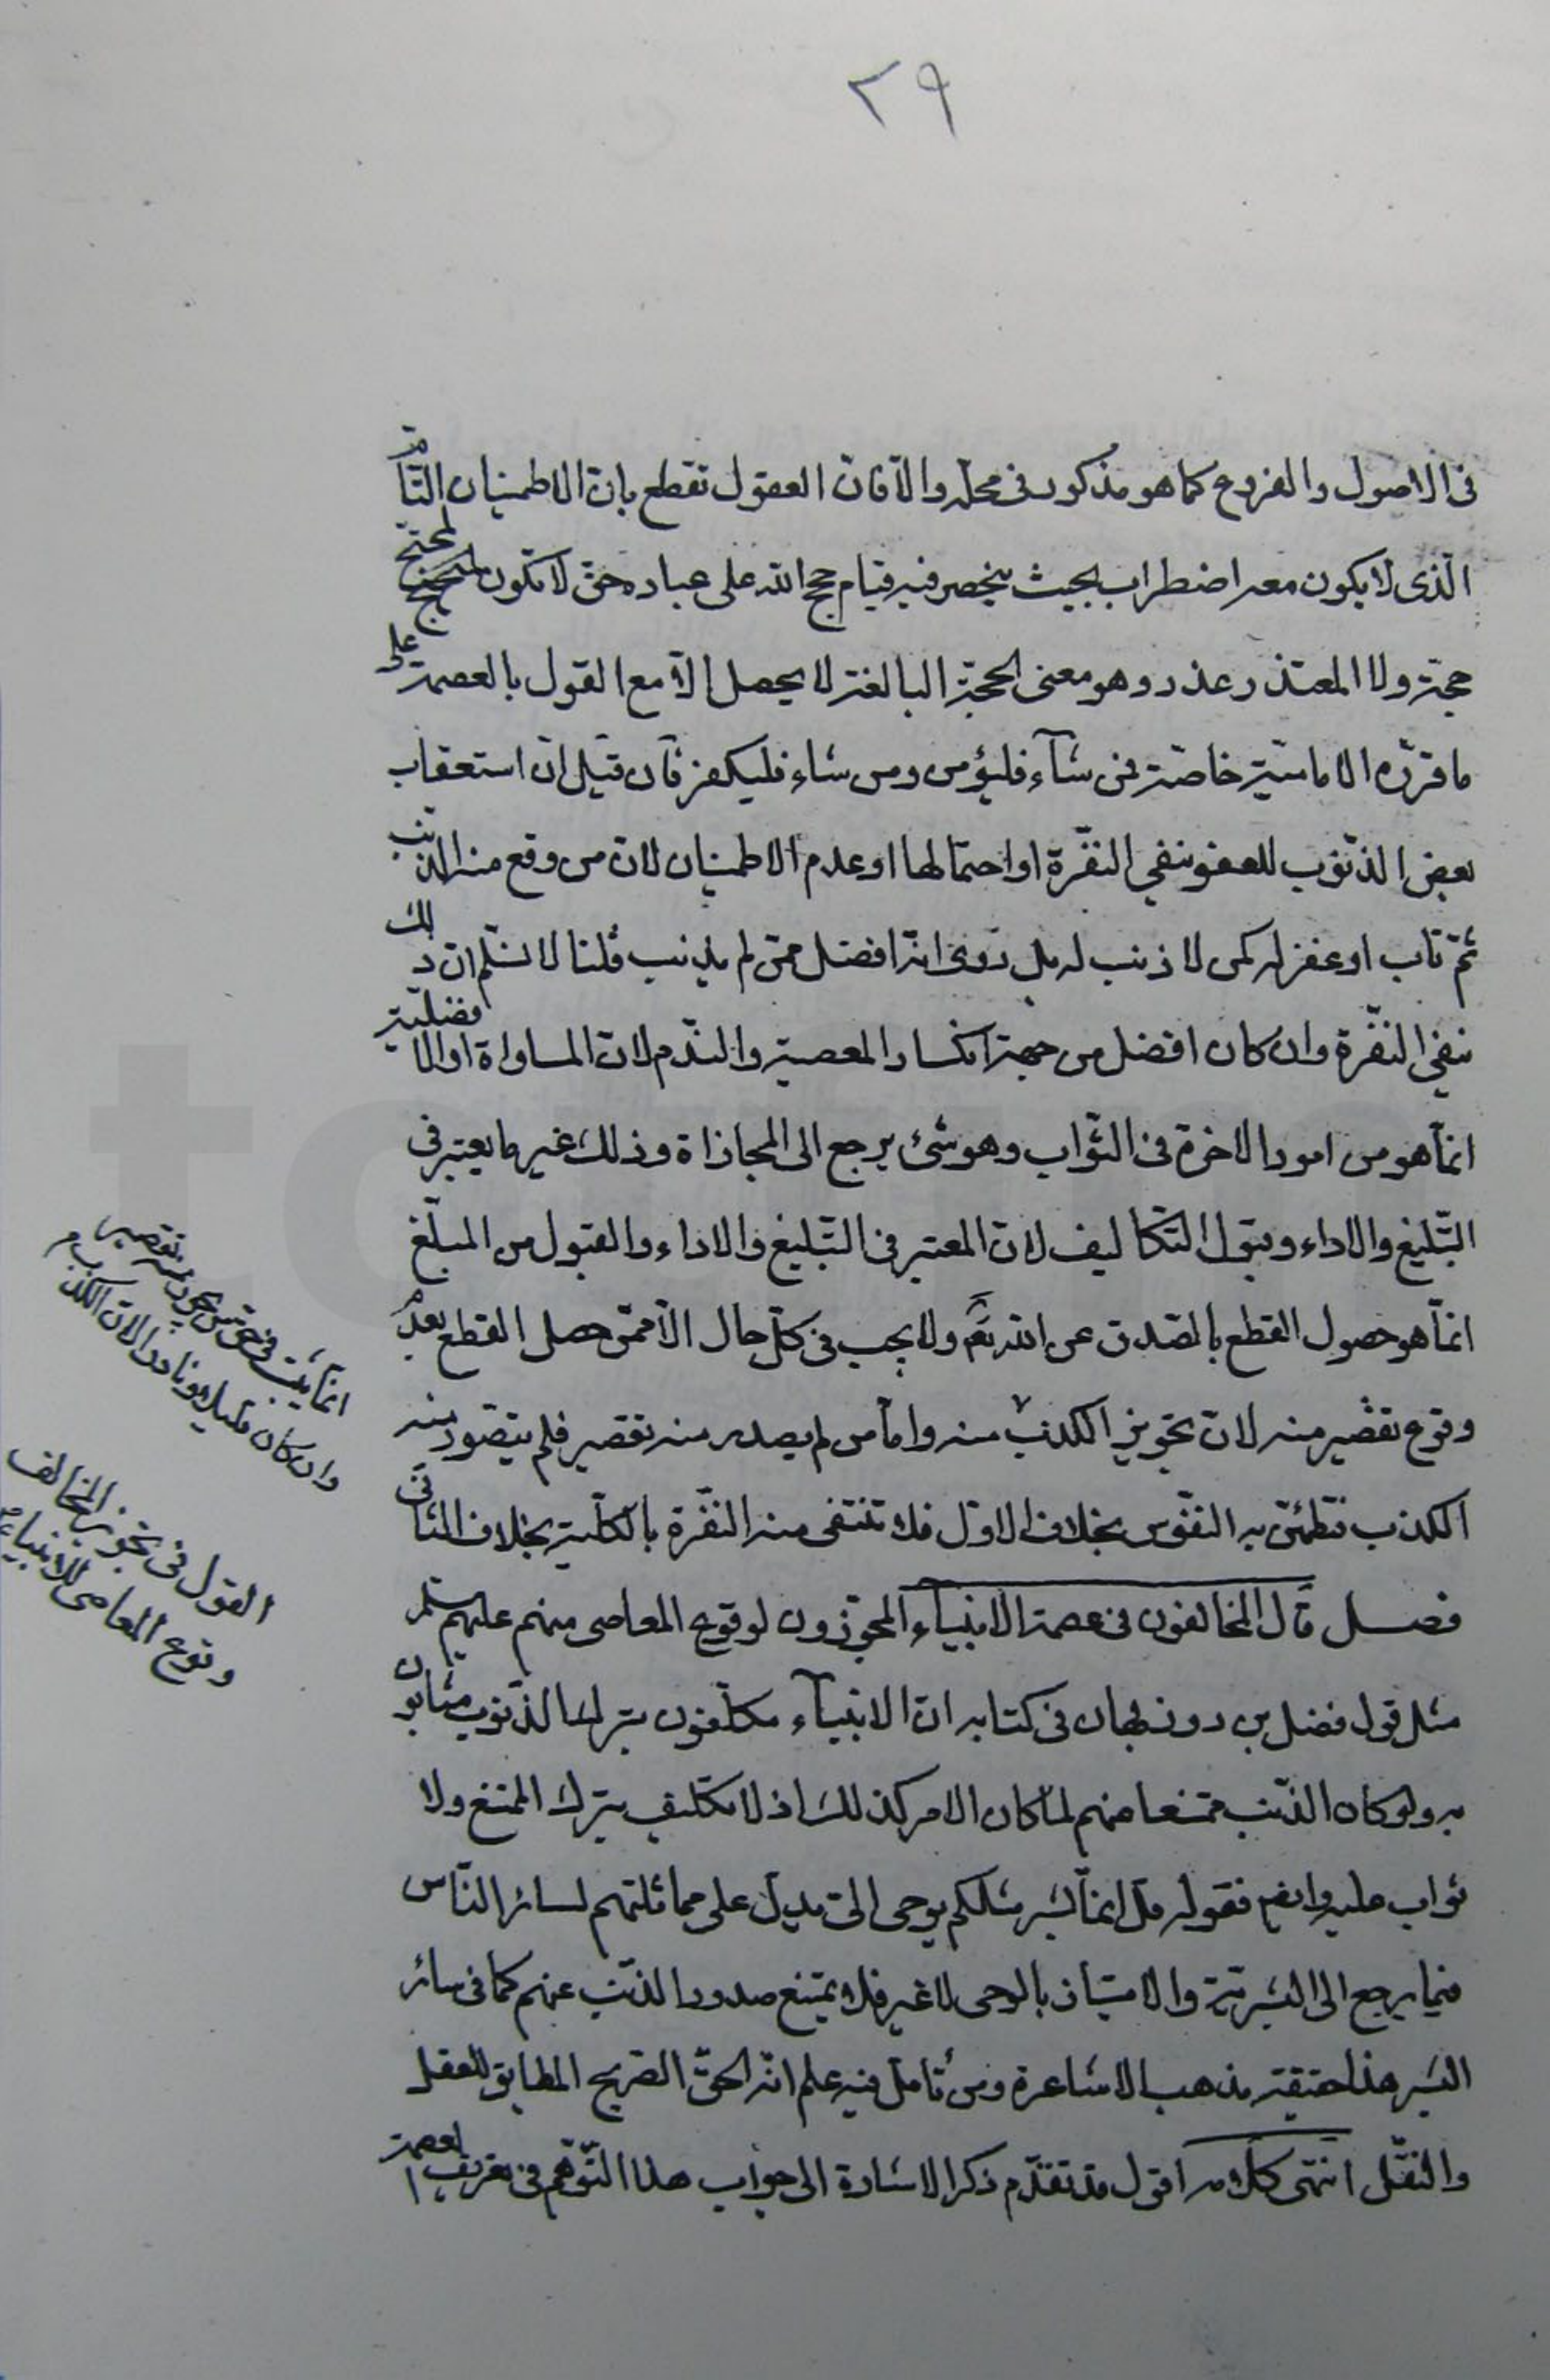 ٢٩
فى الاصول والفروع كما هو مذكور فى محلّه والّا فانّ العقول تقطع بانّ الاطمينان التّامّ
الّذى لا يكون معه اضطراب بحيث ينحصر فيه قيام حجج الله على عباده حتّى لا تكون لمحتجّ
حجة ولا المعتذر عذر وهو معنى الحجّة البالغة لا يحصل الّا مع القول بالعصمة على
ما قرّره الاماميّة خاصّة فمن شآء فليؤمن ومن شاء فليكفر فان قيل انّ استعقاب
بعض الذّنوب للعفو ينفي النفّرة او احتمالها او عدم الاطمينان لانّ من وقع منه الذّنب
ثمّ تاب او غفر له كمن لا ذنب له بل روى انّه افضل ممّن لم يذنب قلنا لا نسلّم انّ ذلك
ينفي النفّرة وان كان افضل من جهة انكسار المعصية والنّدم لانّ المساواة او الافضليّة
انمّا هو من امور الاخرة فى الثّواب وهو شئ يرجع الى المجازاة وذلك غير ما يعتبر فى
التّبليغ والاداء وقبول التّكاليف لانّ المعتبر فى التّبليغ والاداء والقبول من المبلّغ
انمّا هو حصول القطع بالصّدق عن الله تعۤ ولا يجب فى كلّ حال الّا ممّن حصل القطع بعدم
وقوع تقصير منه لانّ تجويز الكذب منه وامّا من لم يصدر منه تقصير فلم يتصّور منه
الكذب فتطمئنّ به النفّوس بخلاف الاوّل فلا تنتفى منه النفّرة بالكلّية بخلاف الثّانى
فصــل قال المخالفون فى عصمة الانبيآء المجوّزون لوقوع المعاصى منهم عليهم سلم
مثل قول فضل بن روزبهان فى كتابه انّ الانبيآء مكلّفون بترك الذّنوب مثابون
به ولو كان الذّنب ممتنعا منهم لما كان الامر كذلك اذ لا تكليف بترك الممتنع ولا
ثواب عليه وايضا فقوله قل انمّا بشر مثلكم يوحى الىّ يدلّ على مماثلتهم لسائر النّاس
فيما يرجع الى البشريّة والامتياز بالوحى لا غير فلا يمتنع صدور الذّنب عنهم كما فى سائر
البشر هذا حقيقة مذهب الاشاعرة ومن تأمّل فيه علم انّه الحقّ الصّريح المطابق للعقل
والنقّل انتهى كلامه اقول قد تقدّم ذكر الاشارة الى جواب هذا التّوهّم فى تعريف العصمة
انمّا يثبت فى حقّ من يجوز منه تقصير
وان كان قليلا ونادرا لانّ الكذب
القول فى تجويز المخالف
وقوع المعاصى للانبياء